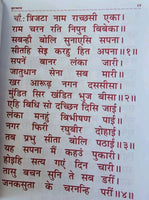 चौ: त्रिजटा नाम राच्छसी एका।
राम चरन रति निपुन बिबेका॥
सबन्हौ बोलि सुनाएसि सपना।
सीतहि सेइ करहु हित अपना॥१॥
सपनें बानर लंका जारी।
जातुधान सेना सब मारी॥
खर आरूढ़ नगन दससीसा।
मुंडित सिर खंडित भुज बीसा॥२॥
एहि बिधि सो दच्छिन दिसि जाई।
लंका मनहुँ बिभीषन पाई॥
नगर फिरी रघुबीर दोहाई।
तब प्रभु सीता बोलि पठाई॥३॥
यह सपना मैं कहउँ पुकारी।
होइहि सत्य गएँ दिन चारी॥
तासु बचन सुनि ते सब डरीं।
जनकसुता के चरनन्हि परीं॥४॥